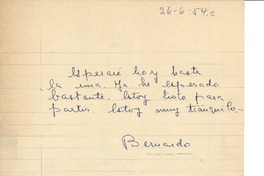 26-6-54.
Esperaré hoy hasta
la una. Ya he esperado
bastante. Estoy listo para
partir. Estoy muy tranquilo.
Bernardo